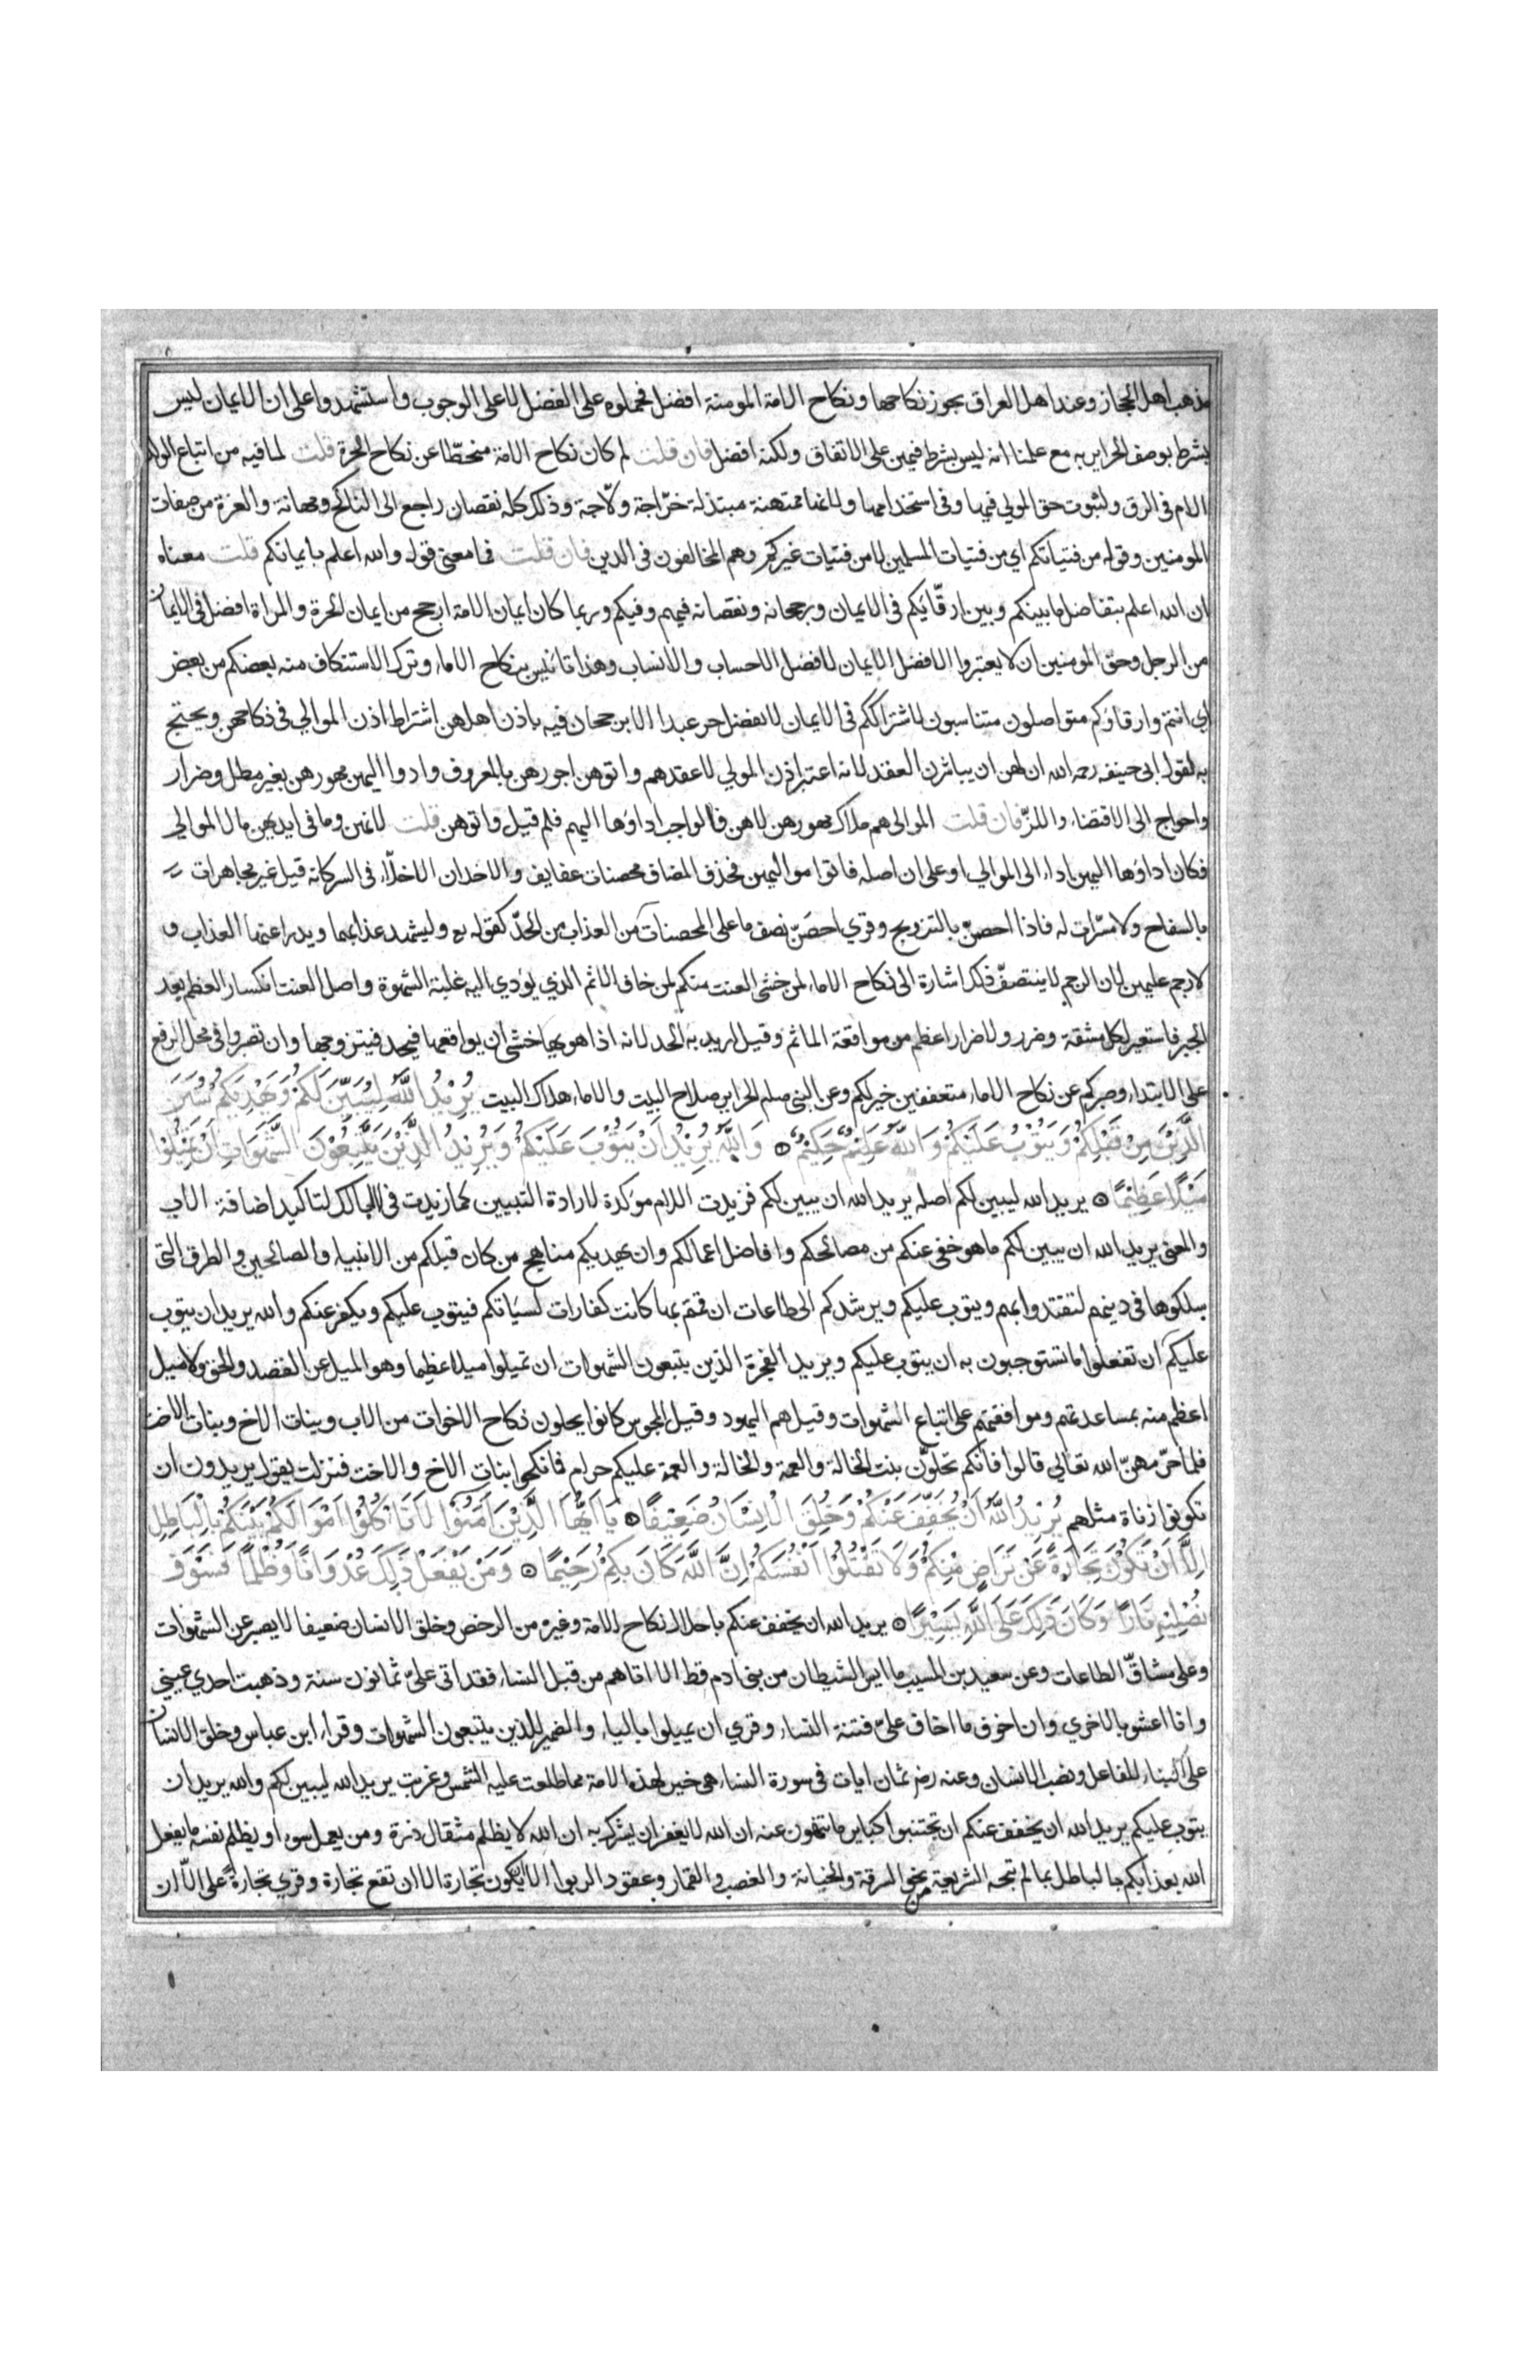 مذهب اهل الحجاز وعند اهل العراق يجوز نكاحها ونكاح الامة المومنة افضل فحملوه على الفضل لا على الوجوب واستشهدوا على ان الايمان ليس
بشرط بوصف الحراير به مع علمنا انه ليس بشرط فيهن على الاتفاق ولكنه افضل فان قلت لم كان نكاح الامة منحطّا عن نكاح الحرة قلت لما فيه من اتباع الولد
الام فى الرق ولثبوت حق المولي فيها وفى استخدامها ولانها ممتهنة مبتذلة خرّاجة ولّاجة وذلك كله نقصان راجع الى الناكح ومهانة والعزة من صفات
المومنين وقوله من فتياتكم اي من فتيات المسلمين لا من فتيات غيركم وهم المخالفون فى الدين فان قلت فما معنى قوله والله اعلم بايمانكم قلت معناه
ان الله اعلم بتفاضل ما بينكم وبين ارقّائكم فى الايمان ورجحانه ونقصانه فيهم وفيكم وربما كان ايمان الامة ارجح من ايمان الحرة والمراة افضل فى الايمان
من الرجل وحق المومنين ان لا يعتبروا الا فضل الايمان لا فضل الاحساب والانساب وهذا تانيس بنكاح الاماء وترك الاستنكاف منه بعضكم من بعض
اي انتم وارقاؤكم متواصلون متناسبون لاشتراككم فى الايمان لا يفضل حر عبدا الا برجحان فيه باذن اهلهن اشتراط اذن الموالي فى نكاحهن ويحتج
به لقول ابى حنيفه رحمه الله ان لهن ان يباشرن العقد لانه اعتبر اذن المولي لا عقدهم واتوهن اجورهن بالمعروف وادوا اليهن مهورهن بغير مطل وضرار
واحواج الى الاقتضاء واللزّ فان قلت الموالى هم ملاك مهورهن لا هن فالواجب اداؤها اليهم فلم قيل واتوهن قلت لانهن وما فى ايديهن مال الموالي
فكان اداؤها اليهن اداء الى الموالي او على ان اصله فاتوا مواليهن فحذف المضاف محصنات عفايف والاخدان الاخلّاء فى السر كانه قيل غير مجاهرات
بالسفاح ولا مسرّات له فاذا احصنّ بالتزويج وقري احصَنّ نصف ما على المحصنات من العذاب من الحدّ كقوله وليشهد عذابهما ويدرا عنها العذاب و
لا رجم عليهن لان الرجم لا يتنصفّ ذلك اشارة الى نكاح الاماء لمن خشى العنت منكم لمن خاف الاثم الذي يودي اليه غلبة الشهوة واصل العنت انكسار العظم بعد
الجبر فاستعير لكل مشقة وضرر ولا ضرار اعظم من مواقعة الماثم وقيل اريد به الحد لانه اذا هويها خشى ان يواقعها فيحد فيتزوجها وان تصبروا فى محل الرفع
على الابتداء وصبركم عن نكاح الاماء متعففين خير لكم وعن النبى صلم الحراير صلاح البيت والاماء هلاك البيت يُرِيْدُ اللّٰهُ لِيُبَيِّنَ لَكُمْ وَيَهْدِيَكُمْ سُنَنَ
الَّذِيْنَ مِنْ قَبْلِكُمْ وَيَتُوْبَ عَلَيْكُمْ وَاللّٰهُ عَلِيْمٌ حَكِيْمٌ ۞ وَاللّٰهُ يُرِيْدُ اَنْ يَتُوْبَ عَلَيْكُمْ وَيُرِيْدُ الَّذِيْنَ يَتَّبِعُوْنَ الشَّهَوَاتِ اَنْ تَمِيْلُوْا
مَيْلًا عَظِيْمًا ۞ يريد الله ليبين لكم اصله يريد الله ان يبين لكم فزيدت اللام موكدة لارادة التبيين كما زيدت فى لا ابالك لتاكيد اضافة الاب
والمعنى يريد الله ان يبين لكم ما هو خفى عنكم من مصالحكم وافاضل اعمالكم وان يهديكم مناهج من كان قبلكم من الانبياء والصالحين والطرق التى
سلكوها فى دينهم لتقتدوا بهم ويتوب عليكم ويرشدكم الى طاعات ان قمتم بها كانت كفارات لسيّاتكم فيتوب عليكم ويكفر عنكم والله يريد ان يتوب
عليكم ان تفعلوا ما تستوجبون به ان يتوب عليكم ويريد الفجرة الذين يتبعون الشهوات ان تميلوا ميلا عظيما وهو الميل عن القصد والحق ولا ميل
اعظم منه بمساعدتهم وموافقتهم على اتباع الشهوات وقيل هم اليهود وقيل المجوس كانوا يحلون نكاح الاخوات من الاب وبنات الاخ وبنات الاخت
فلما حرّمهنّ الله تعالى قالوا فانكم تحلّون بنت الخالة والعمة والخالة والعمة عليكم حرام فانكحوا بنات الاخ والاخت فنزلت يقول يريدون ان
تكونوا زناة مثلهم يُرِيْدُ اللّٰهُ اَنْ يُخَفِّفَ عَنْكُمْ وَخُلِقَ الْاِنْسَانُ ضَعِيْفًا ۞ يَا اَيُّهَا الَّذِيْنَ اٰمَنُوْا لَا تَاْكُلُوْا اَمْوَالَكُمْ بَيْنَكُمْ بِالْبَاطِلِ
اِلَّا اَنْ تَكُوْنَ تِجَارَةً عَنْ تَرَاضٍ مِنْكُمْ وَلَا تَقْتُلُوْا اَنْفُسَكُمْ اِنَّ اللّٰهَ كَانَ بِكُمْ رَحِيْمًا ۞ وَمَنْ يَفْعَلْ ذٰلِكَ عُدْوَانًا وَظُلْمًا فَسَوْفَ
نُصْلِيْهِ نَارًا وَكَانَ ذٰلِكَ عَلَى اللّٰهِ يَسِيْرًا ۞ يريد الله ان يخفف عنكم باحلال نكاح الامة وغيره من الرخص وخلق الانسان ضعيفا لا يصبر عن الشهوات
وعلى مشاقّ الطاعات وعن سعيد بن المسيب ما ايس الشيطان من بنى ادم قط الا اتاهم من قبل النساء فقد اتى علىّ ثمانون سنة وذهبت احدي عينى
وانا اعشو بالاخري وان اخوف ما اخاف علىّ فتنة النساء وقري ان يميلوا بالياء والضمير للذين يتبعون الشهوات وقراء ابن عباس وخلق الانسان
على البناء للفاعل ونصب الانسان وعنه رضى ثمان ايات فى سورة النساء هى خير لهذه الامة مما طلعت عليه الشمس وغربت يريد الله ليبين لكم والله يريد ان
يتوب عليكم يريد الله ان يخفف عنكم ان تجتنبوا كباير ما تنهون عنه ان الله لا يغفر ان يشرك به ان الله لا يظلم مثقال ذرة ومن يعمل سوءا او يظلم نفسه ما يفعل
الله بعذابكم بالباطل بما لم تبحه الشريعة من نحو السرقة والخيانة والغصب والقمار وعقود الربوا الا ان يكون تجارة الا ان تقع تجارة وقري تجارة على الّا ان